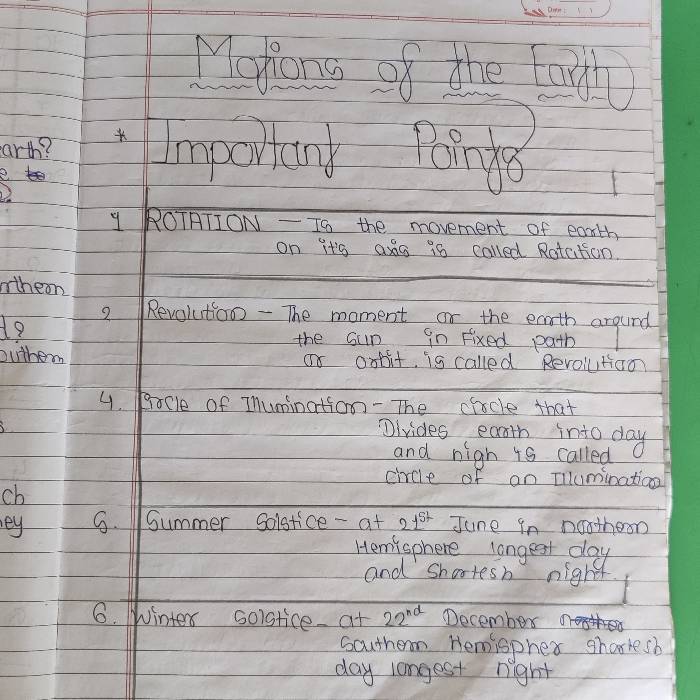 Date:
Motions of the Earth
* Important Points
1 ROTATION – Is the movement of earth
on it's axis is called Rotation.
2 Revolution – The moment or the earth around
the sun in Fixed path
or orbit. is called Revolution
4. Circle of Illumination – The circle that
Divides earth into day
and nigh is called
circle of an Illumination
5. Summer Solstice – at 21st June in northern
Hemisphere longest day
and shortesh night.
6. Winter Solstice – at 22nd December
Southern Hemispher shortesh
day longest night
arth?
e to
rthern
d?
outhern
ch
hey